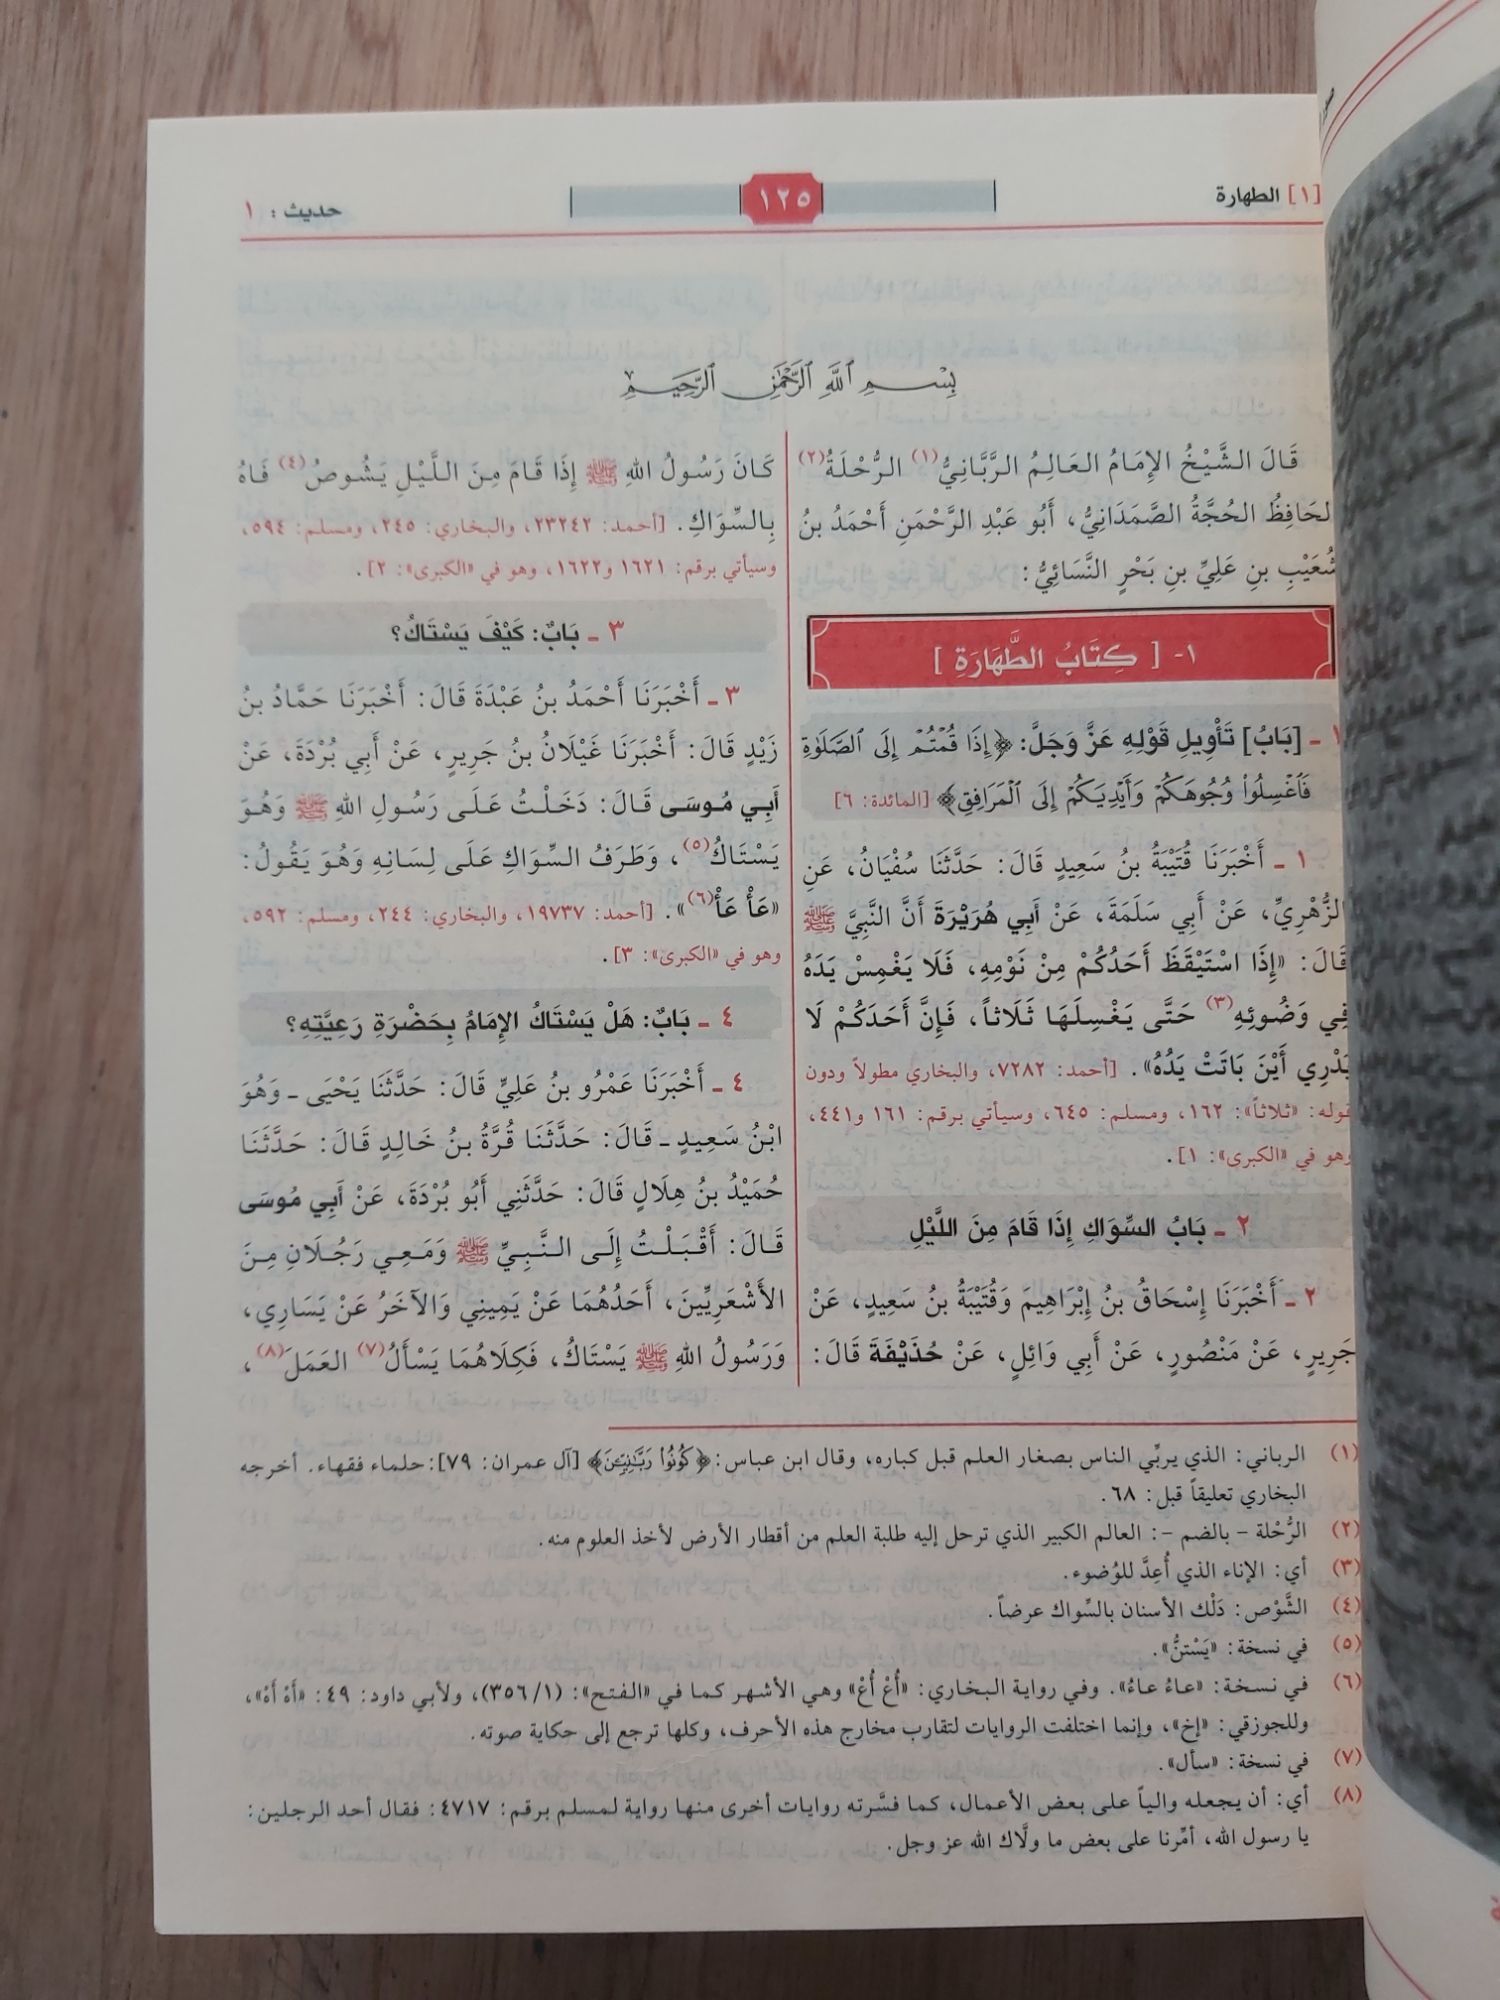 [١] الطهارة
١٢٥
حديث : ١
بِسْمِ اللَّهِ الرَّحْمَٰنِ الرَّحِيمِ
قَالَ الشَّيْخُ الإِمَامُ العَالِمُ الرَّبَّانِيُّ(١) الرُّحْلَةُ(٢)
الحَافِظُ الحُجَّةُ الصَّمَدَانِيُّ، أَبُو عَبْدِ الرَّحْمَنِ أَحْمَدُ بنُ
شُعَيْبِ بنِ عَلِيِّ بنِ بَحْرٍ النَّسَائِيُّ:
١- [ كِتَابُ الطَّهَارَةِ ]
١ - [بَابُ] تَأْوِيلِ قَوْلِهِ عَزَّ وَجَلَّ: ﴿إِذَا قُمْتُمْ إِلَى الصَّلَوٰةِ
فَاغْسِلُوا وُجُوهَكُمْ وَأَيْدِيَكُمْ إِلَى الْمَرَافِقِ﴾ [المائدة: ٦]
١ - أَخْبَرَنَا قُتَيْبَةُ بنُ سَعِيدٍ قَالَ: حَدَّثَنَا سُفْيَانُ، عَنِ
الزُّهْرِيِّ، عَنْ أَبِي سَلَمَةَ، عَنْ أَبِي هُرَيْرَةَ أَنَّ النَّبِيَّ ﷺ
قَالَ: «إِذَا اسْتَيْقَظَ أَحَدُكُمْ مِنْ نَوْمِهِ، فَلَا يَغْمِسْ يَدَهُ
فِي وَضُوئِهِ(٣) حَتَّى يَغْسِلَهَا ثَلَاثاً، فَإِنَّ أَحَدَكُمْ لَا
يَدْرِي أَيْنَ بَاتَتْ يَدُهُ». [أحمد: ٧٢٨٢، والبخاري مطولاً ودون
قوله: «ثلاثاً»: ١٦٢، ومسلم: ٦٤٥، وسيأتي برقم: ١٦١ و٤٤١،
وهو في «الكبرى»: ١].
٢ - بَابُ السِّوَاكِ إِذَا قَامَ مِنَ اللَّيْلِ
٢ - أَخْبَرَنَا إِسْحَاقُ بنُ إِبْرَاهِيمَ وَقُتَيْبَةُ بنُ سَعِيدٍ، عَنْ
جَرِيرٍ، عَنْ مَنْصُورٍ، عَنْ أَبِي وَائِلٍ، عَنْ حُذَيْفَةَ قَالَ:
كَانَ رَسُولُ اللهِ ﷺ إِذَا قَامَ مِنَ اللَّيْلِ يَشُوصُ(٤) فَاهُ
بِالسِّوَاكِ. [أحمد: ٢٣٢٤٢، والبخاري: ٢٤٥، ومسلم: ٥٩٤،
وسيأتي برقم: ١٦٢١ و١٦٢٢، وهو في «الكبرى»: ٢].
٣ - بَابٌ: كَيْفَ يَسْتَاكُ؟
٣ - أَخْبَرَنَا أَحْمَدُ بنُ عَبْدَةَ قَالَ: أَخْبَرَنَا حَمَّادُ بنُ
زَيْدٍ قَالَ: أَخْبَرَنَا غَيْلَانُ بنُ جَرِيرٍ، عَنْ أَبِي بُرْدَةَ، عَنْ
أَبِي مُوسَى قَالَ: دَخَلْتُ عَلَى رَسُولِ اللهِ ﷺ وَهُوَ
يَسْتَاكُ(٥)، وَطَرَفُ السِّوَاكِ عَلَى لِسَانِهِ وَهُوَ يَقُولُ:
«عَأْ عَأْ(٦)». [أحمد: ١٩٧٣٧، والبخاري: ٢٤٤، ومسلم: ٥٩٢،
وهو في «الكبرى»: ٣].
٤ - بَابٌ: هَلْ يَسْتَاكُ الإِمَامُ بِحَضْرَةِ رَعِيَّتِهِ؟
٤ - أَخْبَرَنَا عَمْرُو بنُ عَلِيٍّ قَالَ: حَدَّثَنَا يَحْيَى - وَهُوَ
ابْنُ سَعِيدٍ - قَالَ: حَدَّثَنَا قُرَّةُ بنُ خَالِدٍ قَالَ: حَدَّثَنَا
حُمَيْدُ بنُ هِلَالٍ قَالَ: حَدَّثَنِي أَبُو بُرْدَةَ، عَنْ أَبِي مُوسَى
قَالَ: أَقْبَلْتُ إِلَى النَّبِيِّ ﷺ وَمَعِي رَجُلَانِ مِنَ
الأَشْعَرِيِّينَ، أَحَدُهُمَا عَنْ يَمِينِي وَالآخَرُ عَنْ يَسَارِي،
وَرَسُولُ اللهِ ﷺ يَسْتَاكُ، فَكِلَاهُمَا يَسْأَلُ(٧) العَمَلَ(٨)،
(١) الرباني: الذي يربِّي الناس بصغار العلم قبل كباره، وقال ابن عباس: ﴿كُونُوا رَبَّانِيِّينَ﴾ [آل عمران: ٧٩]: حلماء فقهاء. أخرجه
البخاري تعليقاً قبل: ٦٨.
(٢) الرُّحْلة - بالضم -: العالم الكبير الذي ترحل إليه طلبة العلم من أقطار الأرض لأخذ العلوم منه.
(٣) أي: الإناء الذي أُعِدَّ للوُضوء.
(٤) الشَّوْص: دَلْك الأسنان بالسِّواك عرضاً.
(٥) في نسخة: «يَسْتنُّ».
(٦) في نسخة: «عاءُ عاءُ». وفي رواية البخاري: «أُعْ أُعْ» وهي الأشهر كما في «الفتح»: (٣٥٦/١)، ولأبي داود: ٤٩: «أهْ أهْ»،
وللجوزقي: «إخ»، وإنما اختلفت الروايات لتقارب مخارج هذه الأحرف، وكلها ترجع إلى حكاية صوته.
(٧) في نسخة: «سأل».
(٨) أي: أن يجعله والياً على بعض الأعمال، كما فسَّرته روايات أخرى منها رواية لمسلم برقم: ٤٧١٧: فقال أحد الرجلين:
يا رسول الله، أمِّرنا على بعض ما ولَّاك الله عز وجل.